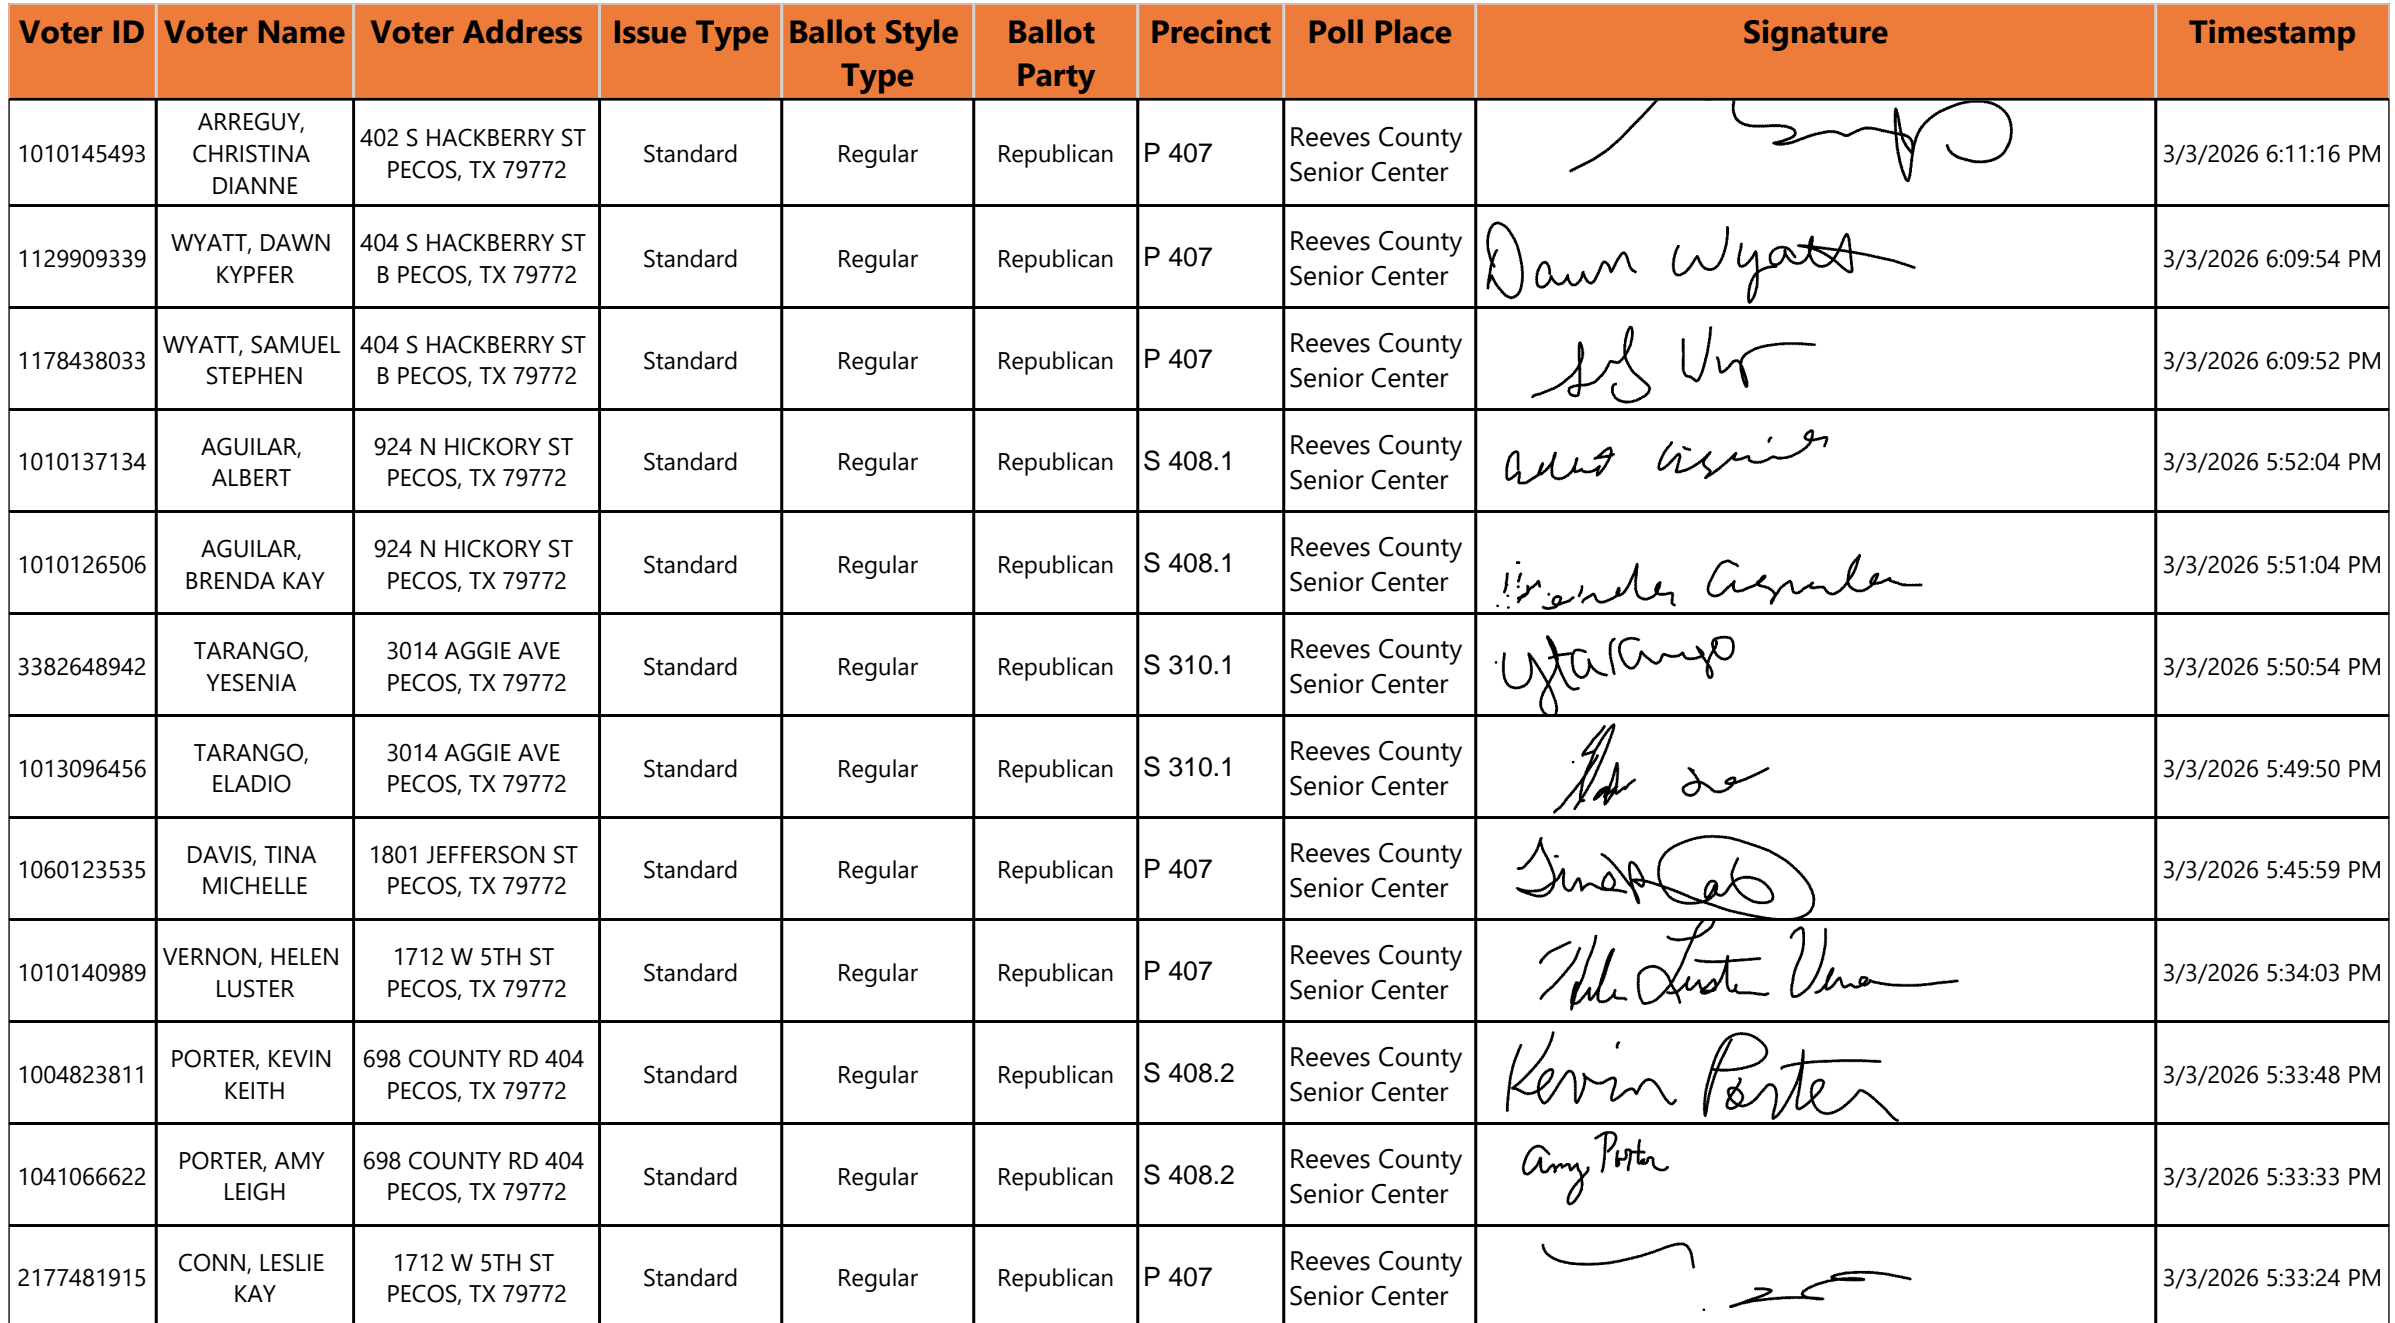 Voter ID Voter Name Voter Address Issue Type Ballot Style Type Ballot Party Precinct Poll Place Signature Timestamp
1010145493 ARREGUY, CHRISTINA DIANNE 402 S HACKBERRY ST PECOS, TX 79772 Standard Regular Republican P 407 Reeves County Senior Center 3/3/2026 6:11:16 PM
1129909339 WYATT, DAWN KYPFER 404 S HACKBERRY ST B PECOS, TX 79772 Standard Regular Republican P 407 Reeves County Senior Center Dawn Wyatt 3/3/2026 6:09:54 PM
1178438033 WYATT, SAMUEL STEPHEN 404 S HACKBERRY ST B PECOS, TX 79772 Standard Regular Republican P 407 Reeves County Senior Center 3/3/2026 6:09:52 PM
1010137134 AGUILAR, ALBERT 924 N HICKORY ST PECOS, TX 79772 Standard Regular Republican S 408.1 Reeves County Senior Center 3/3/2026 5:52:04 PM
1010126506 AGUILAR, BRENDA KAY 924 N HICKORY ST PECOS, TX 79772 Standard Regular Republican S 408.1 Reeves County Senior Center 3/3/2026 5:51:04 PM
3382648942 TARANGO, YESENIA 3014 AGGIE AVE PECOS, TX 79772 Standard Regular Republican S 310.1 Reeves County Senior Center Ytarango 3/3/2026 5:50:54 PM
1013096456 TARANGO, ELADIO 3014 AGGIE AVE PECOS, TX 79772 Standard Regular Republican S 310.1 Reeves County Senior Center 3/3/2026 5:49:50 PM
1060123535 DAVIS, TINA MICHELLE 1801 JEFFERSON ST PECOS, TX 79772 Standard Regular Republican P 407 Reeves County Senior Center 3/3/2026 5:45:59 PM
1010140989 VERNON, HELEN LUSTER 1712 W 5TH ST PECOS, TX 79772 Standard Regular Republican P 407 Reeves County Senior Center 3/3/2026 5:34:03 PM
1004823811 PORTER, KEVIN KEITH 698 COUNTY RD 404 PECOS, TX 79772 Standard Regular Republican S 408.2 Reeves County Senior Center Kevin Porter 3/3/2026 5:33:48 PM
1041066622 PORTER, AMY LEIGH 698 COUNTY RD 404 PECOS, TX 79772 Standard Regular Republican S 408.2 Reeves County Senior Center Amy Porter 3/3/2026 5:33:33 PM
2177481915 CONN, LESLIE KAY 1712 W 5TH ST PECOS, TX 79772 Standard Regular Republican P 407 Reeves County Senior Center 3/3/2026 5:33:24 PM